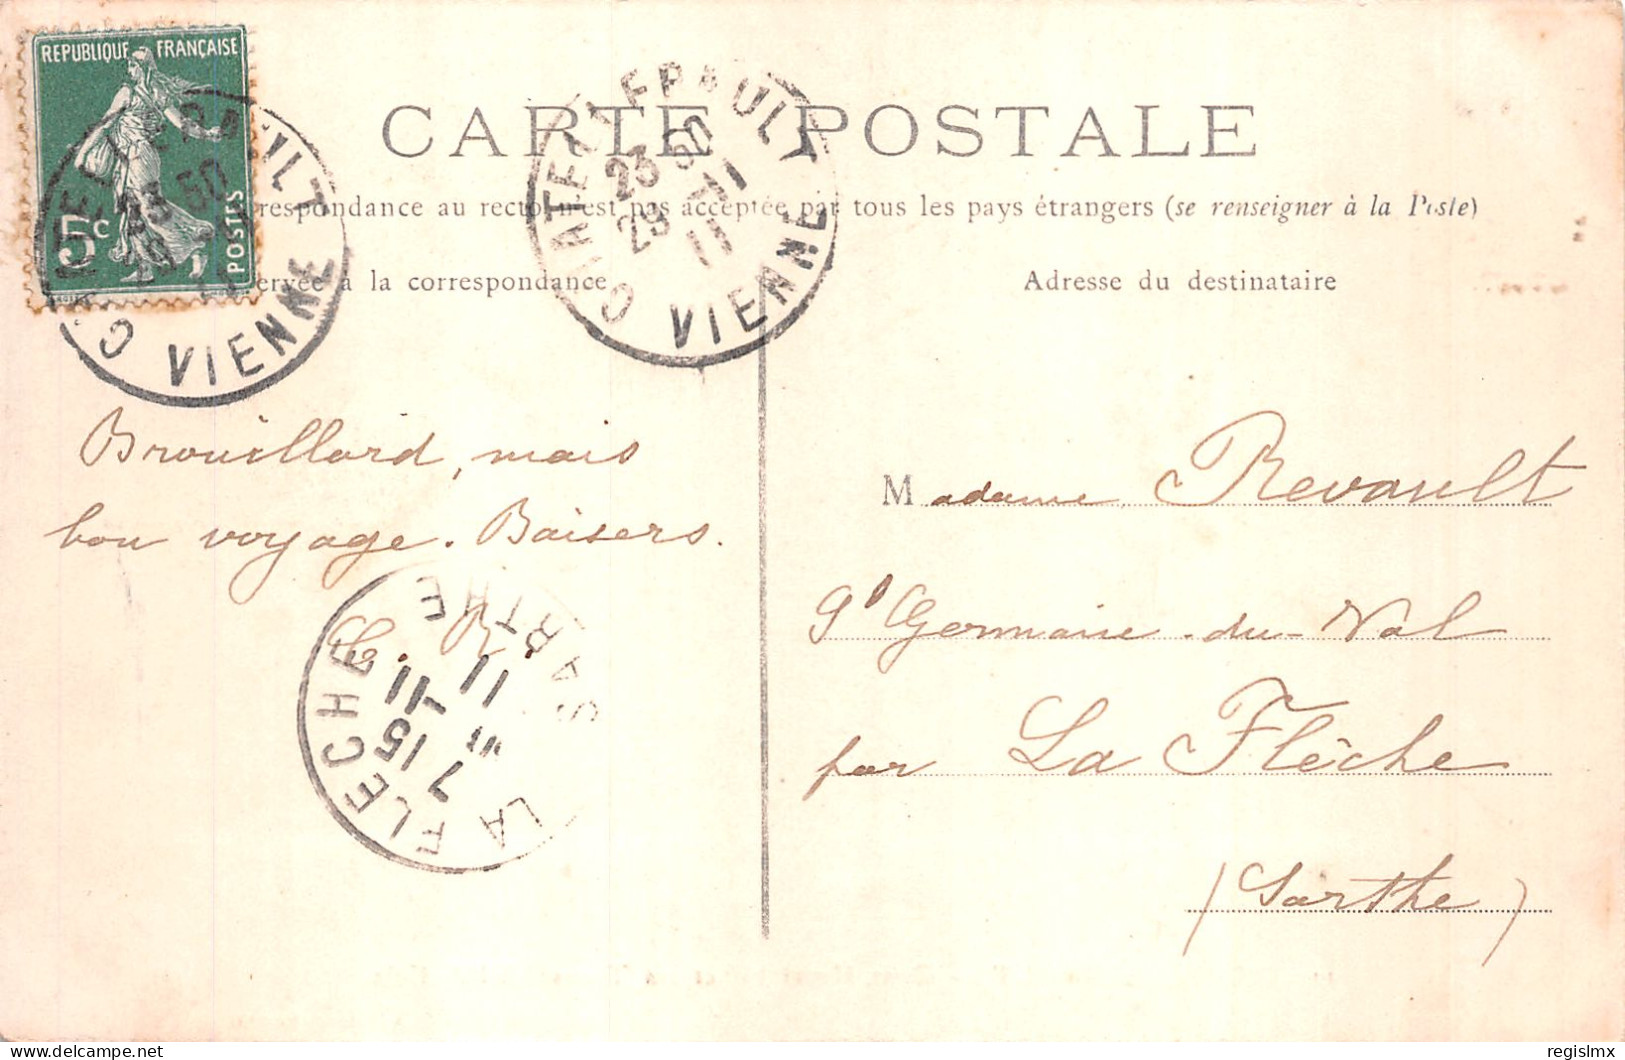 REPUBLIQUE FRANÇAISE
5c
POSTES
CARTE POSTALE
respondance au recto n'est pas acceptée par tous les pays étrangers (se renseigner à la Poste)
ervée à la correspondance
Adresse du destinataire
CHATELLERAULT
23 50
29 -1
11
VIENNE
CHATELLERAULT
23 50
29 -1
11
VIENNE
Brouillard, mais
bon voyage. Baisers.
LA FLECHE
7
15 -1
11
SARTHE
Madame Revault
St Germain-du-Val
par La Flêche
(Sarthe)
regislmx
delcampe.net